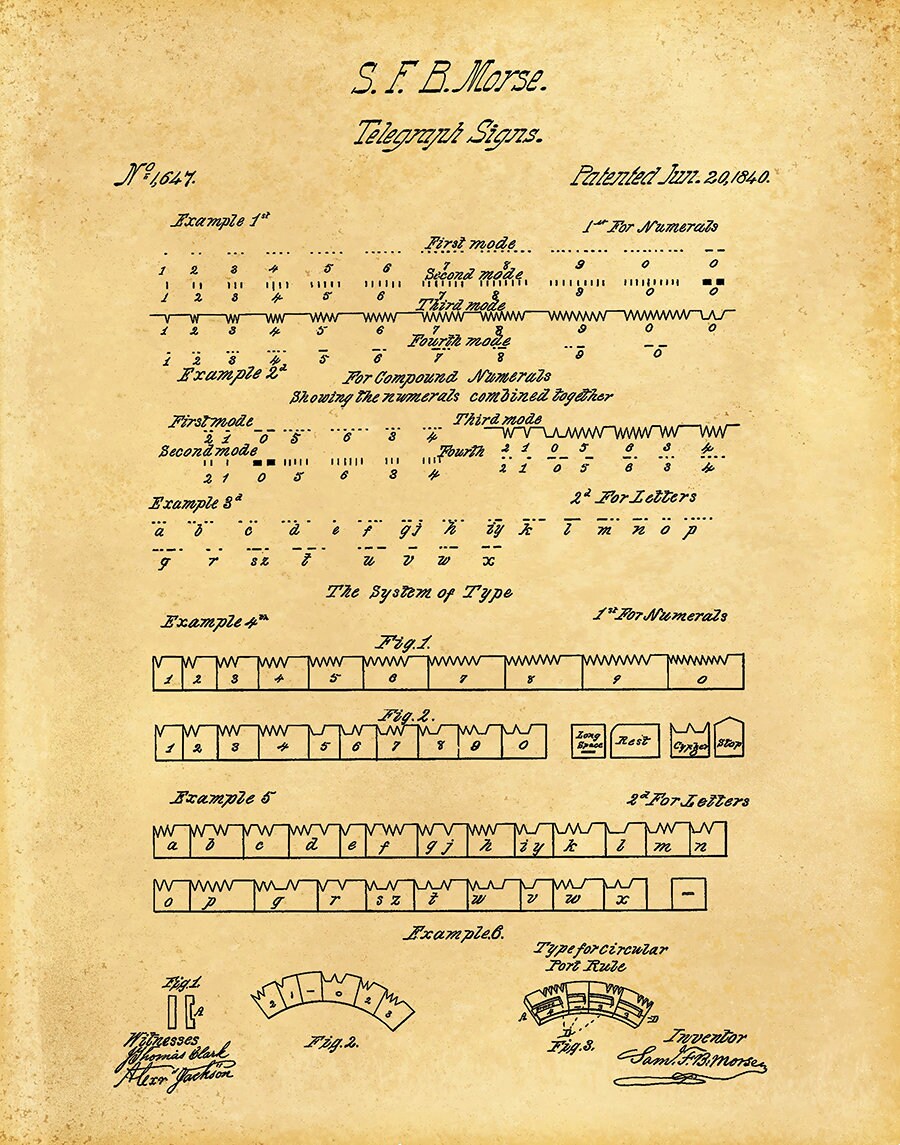 S. F. B. Morse.
Telegraph Signs.
No. 1,647. Patented Jun. 20, 1840.
Example 1st 1st For Numerals
First mode
1 2 3 4 5 6 7 8 9 0 0
Second mode
1 2 3 4 5 6 7 8 9 0 0
Third mode
1 2 3 4 5 6 7 8 9 0 0
Fourth mode
1 2 3 4 5 6 7 8 9 0
Example 2d For Compound Numerals
Showing the numerals combined together
First mode Third mode
2 1 0 5 6 3 4 2 1 0 5 6 3 4
Second mode Fourth
2 1 0 5 6 3 4 2 1 0 5 6 3 4
Example 3d 2d For Letters
a b c d e f gj h iy k l m n o p
q r sz t u v w x
The System of Type
Example 4th 1st For Numerals
Fig. 1.
1 2 3 4 5 6 7 8 9 0
Fig. 2.
1 2 3 4 5 6 7 8 9 0 Long Space Rest Cypher Stop
Example 5 2d For Letters
a b c d e f g j h i y k l m n
o p q r s z t w v w x –
Example 6.
Type for Circular
Port Rule
Fig. 1
A
2 1 – 0 2 3
Fig. 2.
A D
D
Fig. 3.
Witnesses
Thomas Clark
Alexr Jackson
Inventor
Sam. F. B. Morse